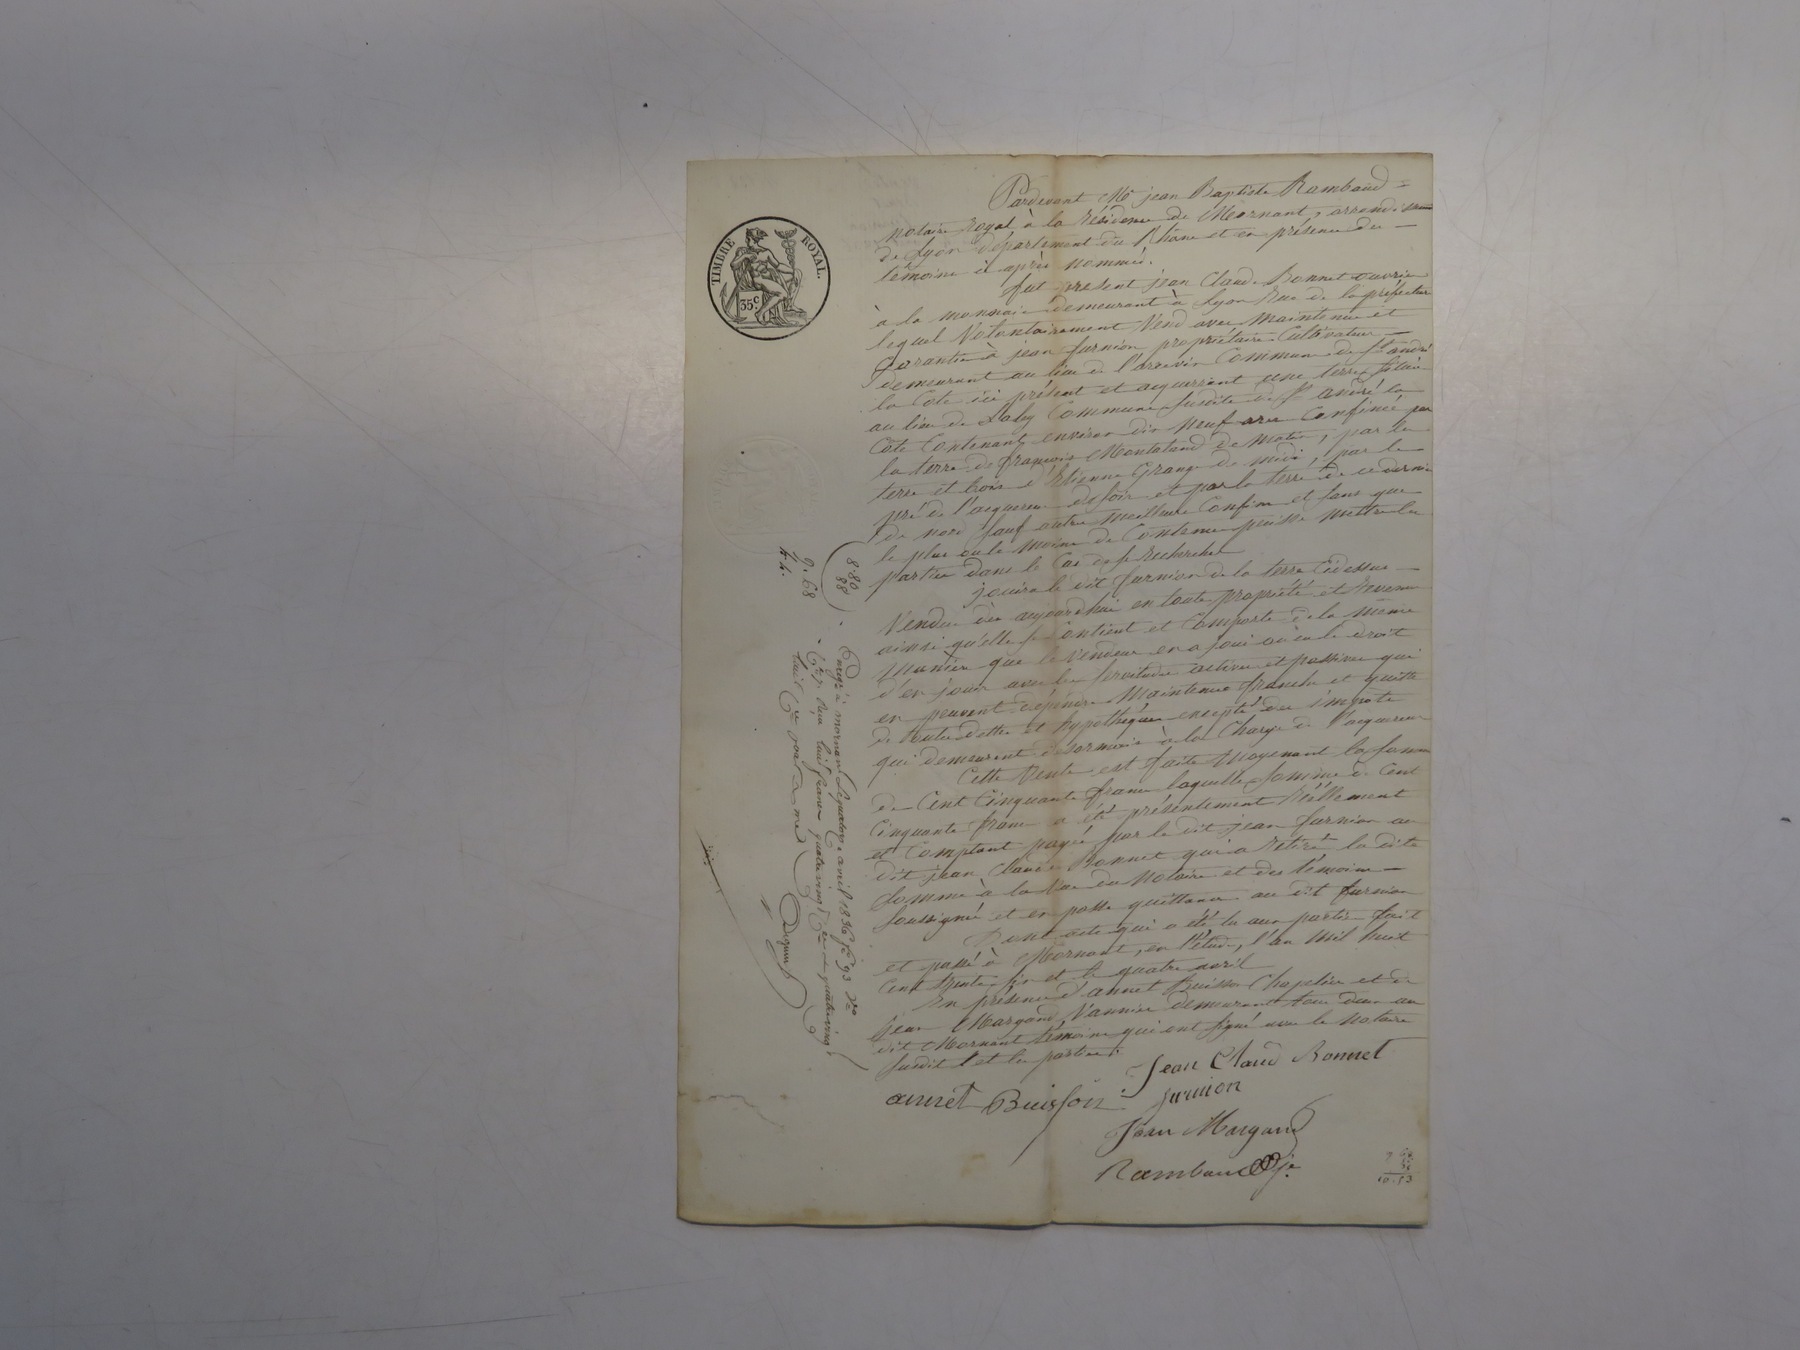 TIMBRE ROYAL.
35c
Pardevant Me jean Baptiste Rambaud =
notaire royal à la résidence de Mornant, arrondissement
de Lyon département du Rhône et en présence des —
témoins ci après nommés.
fut présent jean Claude Bonnet ouvrier
à la monnaie demeurant à Lyon rue de la préfecture
lequel Volontairement Vend avec maintenue et
garantie à jean furnion propriétaire Cultivateur —
demeurant au lieu de Commune de St andré
la Cote ici présent et acquerrant une terre située
au lieu de Commune susdite de St andré la
Cote Contenant environ dix neuf ares Confinée par
la terre de françois de matin, par la
terre et bois d'Etienne Grange de midi, par le
pré de l'acquereur de soir et par la terre de ce dernier
de nord sauf autres meilleurs Confins et sans que
le plus ou le moins de Contenue puisse mettre les
parties dans le Cas de se rechercher
jouira le dit furnion de la terre Cidessus —
Vendue dès aujourdhui en toute propriété et revenu
ainsi qu'elle se Contient et Comporte de la même
Manière que le vendeur en a joui ou eu le droit
d'en jouir avec les servitudes actives et passives qui
en peuvent dépendre Maintenue franche et quitte
de toutes dettes et hypothèques excepté des impots
qui demeurent désormais à la Charge de l'acquereur
Cette Vente est faite Moyenant la somme
de Cent Cinquante francs laquelle somme de Cent
Cinquante francs a été présentement Réellement
et Comptant payée par le dit jean furnion au
dit jean Claude Bonnet qui a retiré la dite
somme à la Vue du Notaire et des témoins —
soussignés et en passe quittance au dit furnion
Dont acte qui a été lu aux parties fait
et passé à Mornant, en l'étude, l'an Mil huit
Cent trente six et le quatre avril
En présence d'annet Buisson Chapelier et de
jean Margand, Vannier demeurant tous deux au
dit Mornant témoins qui ont signé avec le Notaire
susdit et les parties.
Jean Claud Bonnet
annet Buisson
furnion
Jean Margand
Rambaud
8.80
88
9.68
Enregé à mornant le quatorze avril 1836 fo 93 Vo
Reçu huit francs quatre vingt cmes et quatre vingt
huit Cmes pour dixme
10.53